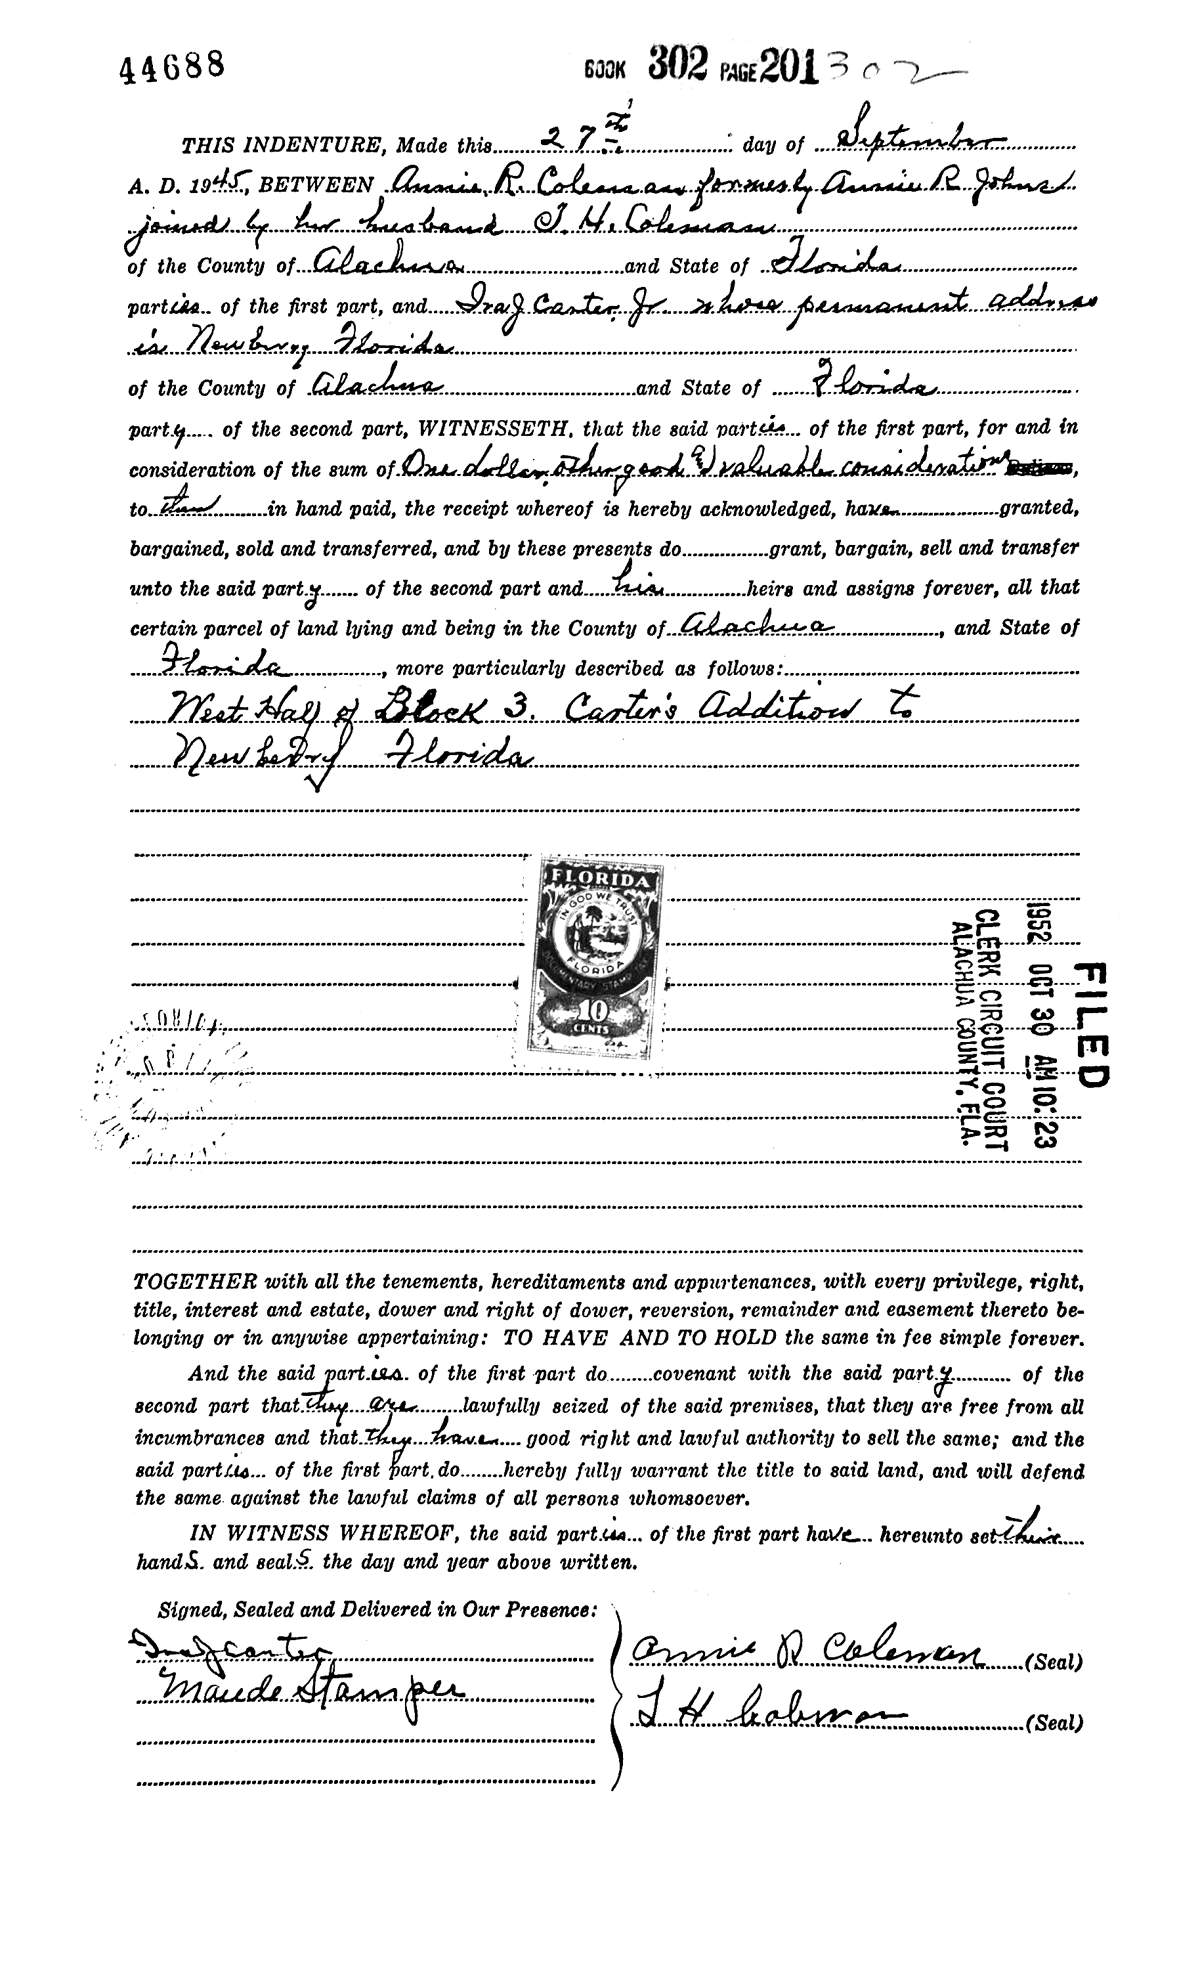 44688
BOOK 302 PAGE 201 302
THIS INDENTURE, Made this 27th day of September
A. D. 1945, BETWEEN Annie R. Coleman formerly Annie R Johns
joined by her husband T. H. Coleman
of the County of Alachua and State of Florida
parties of the first part, and Ira J Carter Jr whose permanent address
is Newberry Florida
of the County of Alachua and State of Florida
party of the second part, WITNESSETH, that the said parties of the first part, for and in
consideration of the sum of One dollar other good & valuable considerations
to them in hand paid, the receipt whereof is hereby acknowledged, have granted,
bargained, sold and transferred, and by these presents do grant, bargain, sell and transfer
unto the said party of the second part and his heirs and assigns forever, all that
certain parcel of land lying and being in the County of Alachua, and State of
Florida, more particularly described as follows:
West Half of Block 3. Carter's Addition to
Newberry Florida
FLORIDA
IN GOD WE TRUST
FLORIDA
DOCUMENTARY STAMP TAX
10
CENTS
FILED
1952 OCT 30 AM 10:23
CLERK CIRCUIT COURT
ALACHUA COUNTY, FLA.
TOGETHER with all the tenements, hereditaments and appurtenances, with every privilege, right,
title, interest and estate, dower and right of dower, reversion, remainder and easement thereto be-
longing or in anywise appertaining: TO HAVE AND TO HOLD the same in fee simple forever.
And the said parties of the first part do covenant with the said party of the
second part that they are lawfully seized of the said premises, that they are free from all
incumbrances and that they have good right and lawful authority to sell the same; and the
said parties of the first part, do hereby fully warrant the title to said land, and will defend
the same against the lawful claims of all persons whomsoever.
IN WITNESS WHEREOF, the said parties of the first part have hereunto set their
hands and seals the day and year above written.
Signed, Sealed and Delivered in Our Presence:
Ira J Carter
Annie R Coleman (Seal)
Maude Stamper
T H Coleman (Seal)